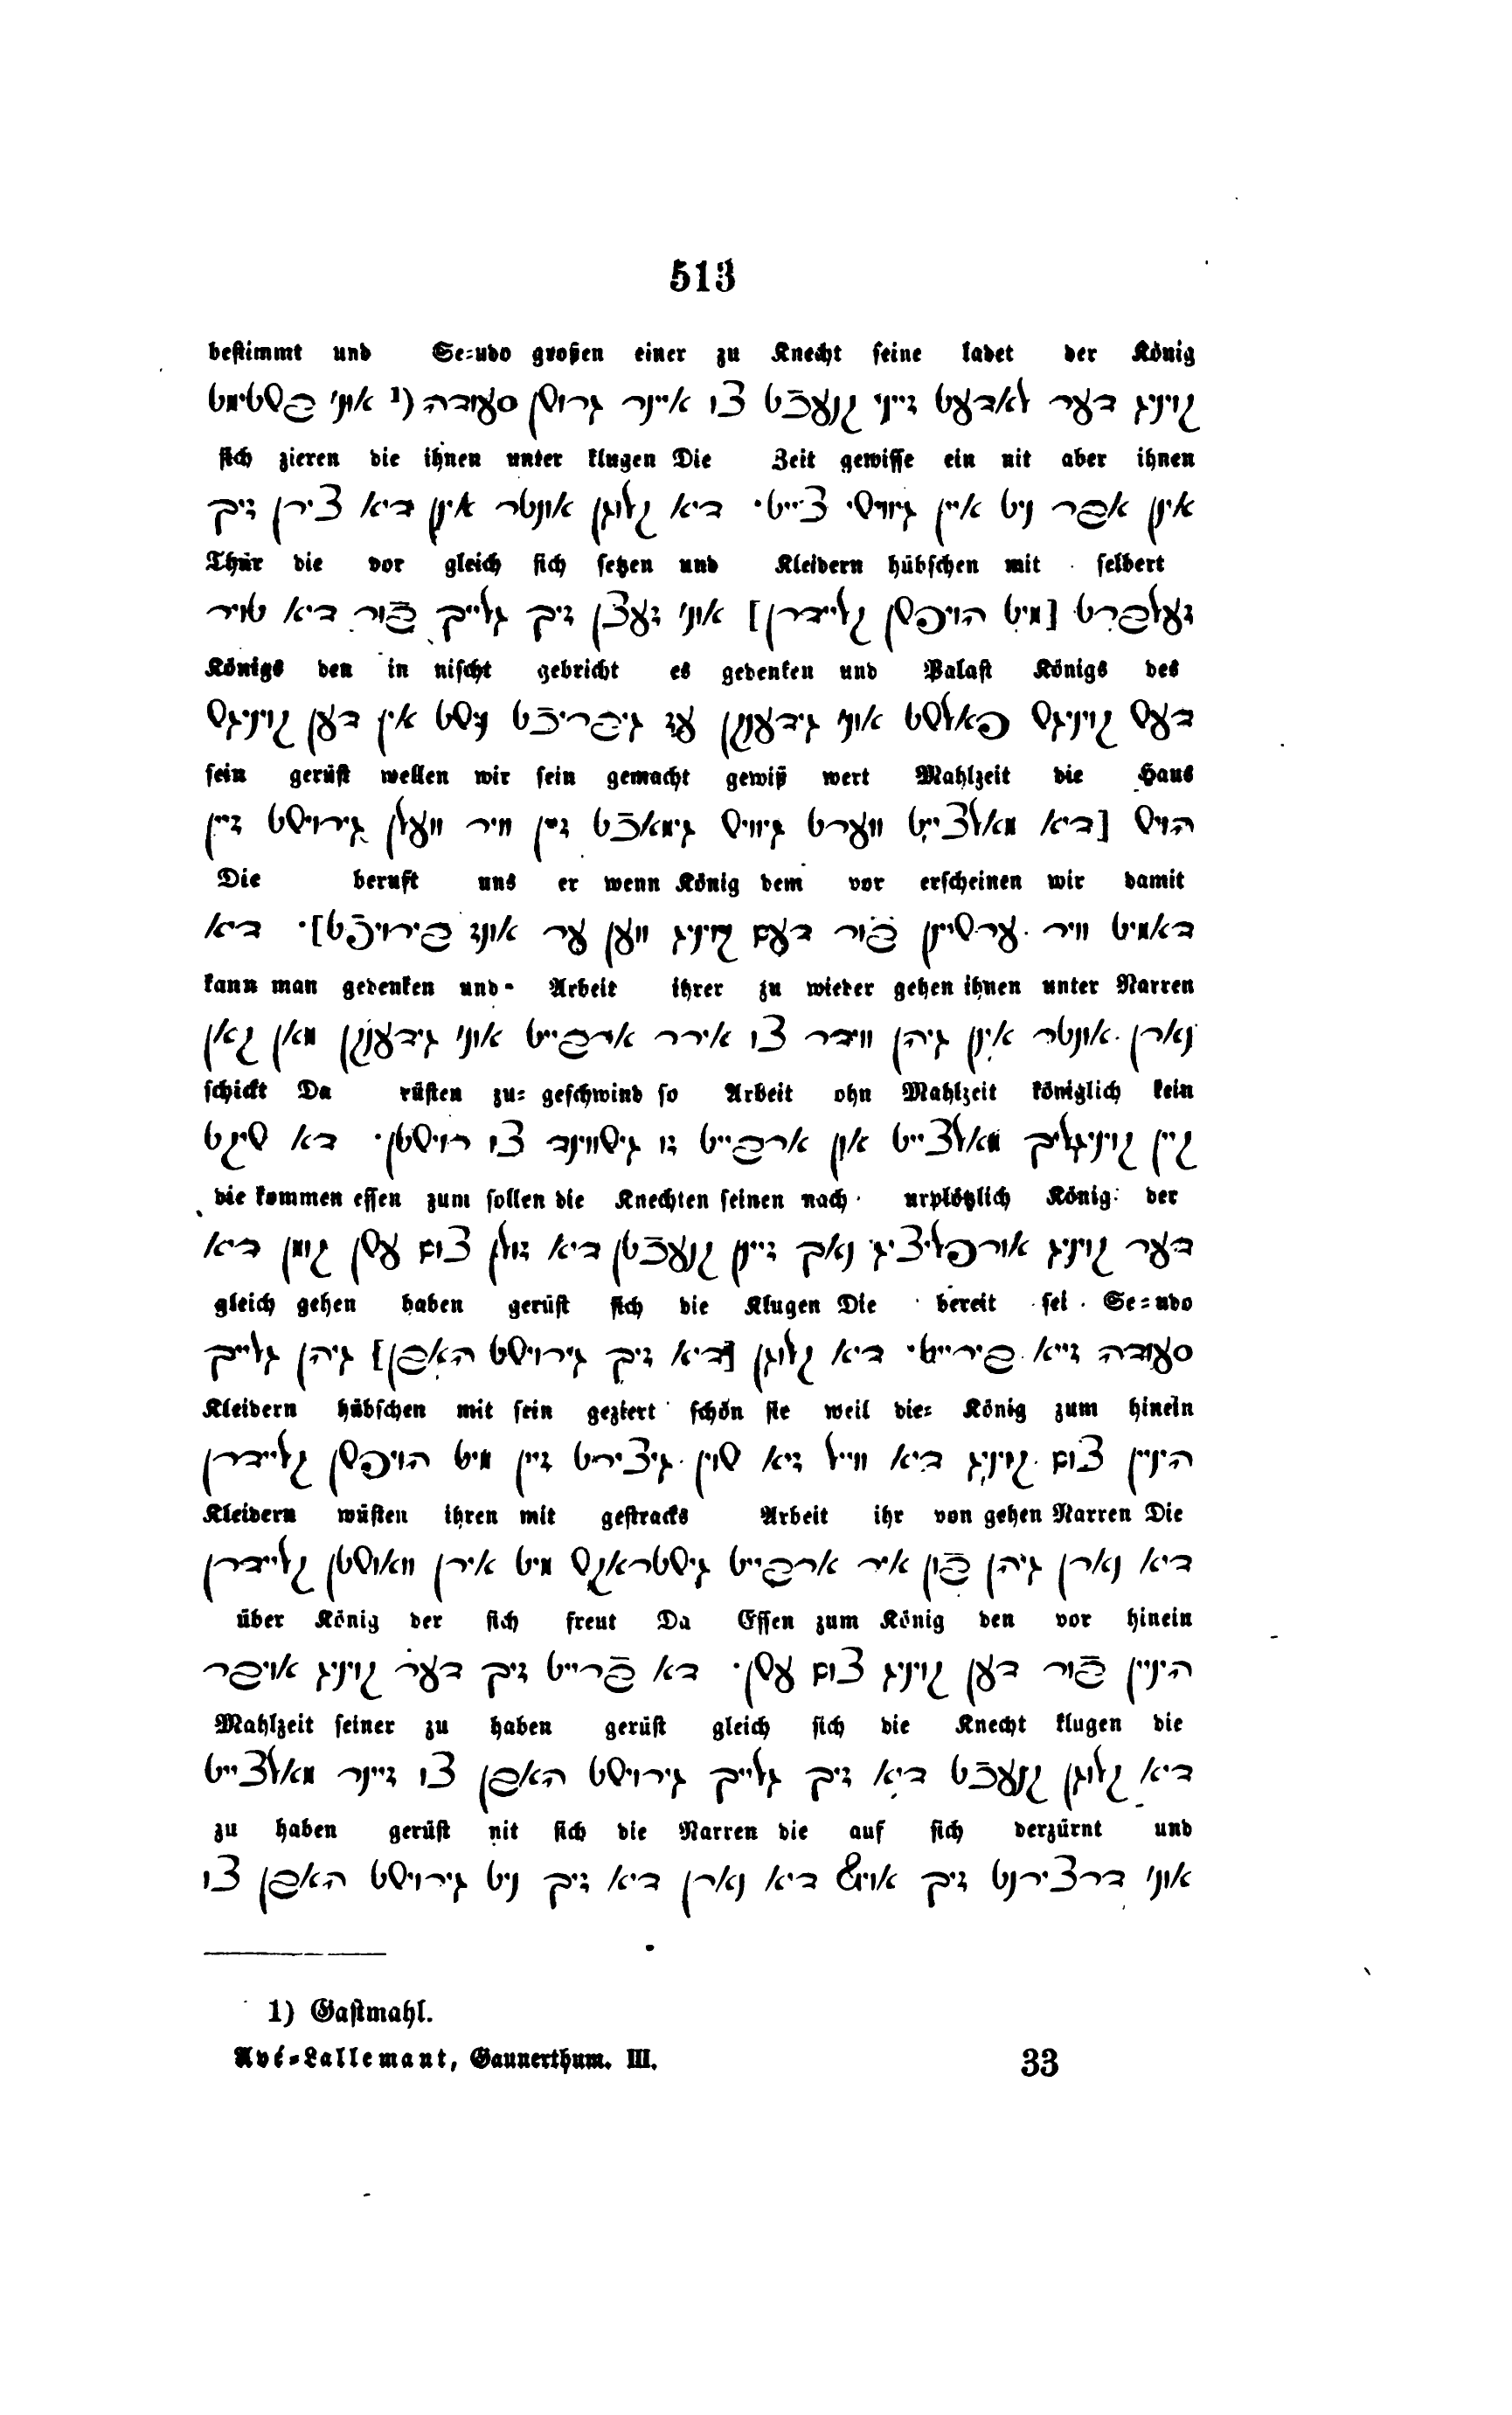 513
bestimmt und Se=udo großen einer zu Knecht seine ladet der König
קויניג דער לאדעט זייני קנעכֿט צו איינר גרוסן סעודה (¹ אוני פשטימט
sich zieren die ihnen unter klugen Die Zeit gewisse ein nit aber ihnen
אינן אפר ניט איין גיוויסי צייט· דיא קלוגן אונטר אינן דיא צירן זיך
Thür die vor gleich sich setzen und Kleidern hübschen mit selbert
זעלפרט [מיט הויפשן קליידרן] אוני זעצן זיך גלייך פֿור דיא טויר
Königs den in nischt gebricht es gedenken und Palast Königs des
דעש קויניגש פאלשט אוני גידענקן עז גיפריכֿט נישט אין דען קויניגש
sein gerüst wellen wir sein gemacht gewiß wert Mahlzeit die Haus
הויש [דיא מאלצייט ווערט גיוויש גימאכֿט זיין וויר וועלן גירוישט זיין
Die beruft uns er wenn König dem vor erscheinen wir damit
דאמיט וויר ערשיינן פֿור דעם קויניג ווען ער אונז פירויפֿט]· דיא
kann man gedenken und Arbeit ihrer zu wieder gehen ihnen unter Narren
נארן אונטר אינן גיהן ווידר צו אירר ארפייט אוני גידענקן מאן קאן
schickt Da rüsten zu= geschwind so Arbeit ohn Mahlzeit königlich kein
קיין קויניגליך מאלצייט און ארפייט זו גישווינד צו רוישטן· דא שיקט
die kommen essen zum sollen die Knechten seinen nach urplötzlich König der
דער קויניג אורפליציג נאך זיינן קנעכֿטן דיא זולן צום עסן קומן דיא
gleich gehen haben gerüst sich die Klugen Die bereit sei Se=udo
סעודה זייא פירייט· דיא קלוגן [דיא זיך גירוישט האפן] גיהן גלייך
Kleidern hübschen mit sein geziert schön sie weil die= König zum hinein
הינײן צום קויניג דיא ווייל זיא שון גיצירט זיין מיט הויפשן קליידרן
Kleidern wüsten ihren mit gestracks Arbeit ihr von gehen Narren Die
דיא נארן גיהן פֿון איר ארפייט גישטראקש מיט אירן וואוסטן קליידרן
über König der sich freut Da Essen zum König den vor hinein
הינײן פֿור דען קויניג צום עסן· דא פֿרייט זיך דער קויניג אויפר
Mahlzeit seiner zu haben gerüst gleich sich die Knecht klugen die
דיא קלוגן קנעכֿט דיא זיך גלייך גירוישט האפן צו זיינר מאלצייט
zu haben gerüst nit sich die Narren die auf sich derzürnt und
אוני דרצירנט זיך אויף דיא נארן דיא זיך ניט גירוישט האפן צו
1) Gastmahl.
Avé=Lallemant, Gaunerthum. III. 33